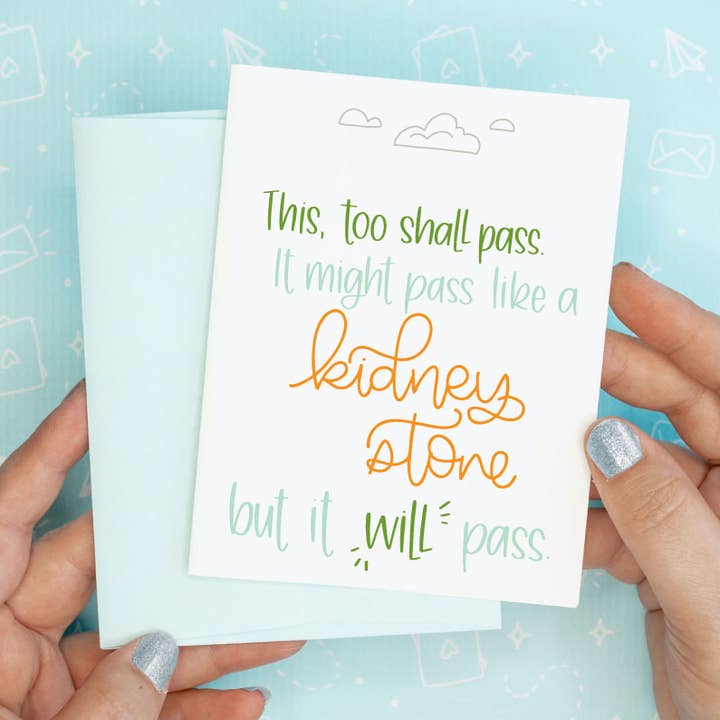 This, too shall pass.
It might pass like a
kidney
stone
but it will pass.